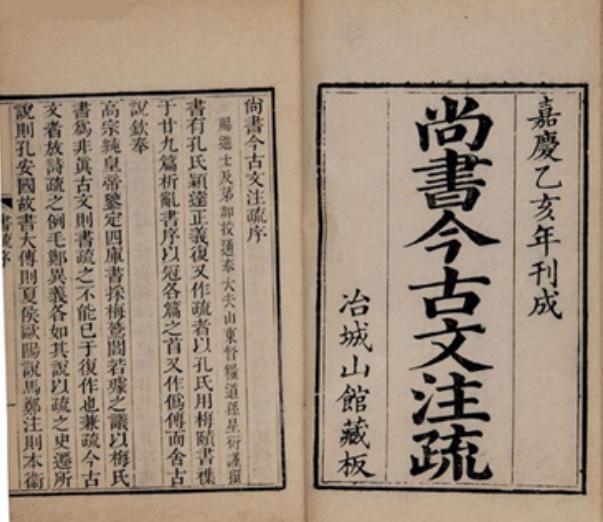 嘉慶乙亥年刊成
尚書今古文注疏
冶城山館藏板
尚書今古文注疏序
賜進士及第加授通奉大夫山東督糧道孫星衍謹撰
書有孔氏穎達正義復又作疏者以孔氏用梅賾書襍
于廿九篇析亂書序以冠各篇之首又作僞傳而舍古
說欽奉
高宗純皇帝鑒定四庫書採梅鷟閻若璩之議以梅氏
書爲非眞古文則書疏之不能已于復作也兼疏今古
文者放詩疏之例毛鄭異義各如其說以疏之史遷所
說則孔安國故書大傳則夏侯歐陽說馬鄭注則本衛
書疏序